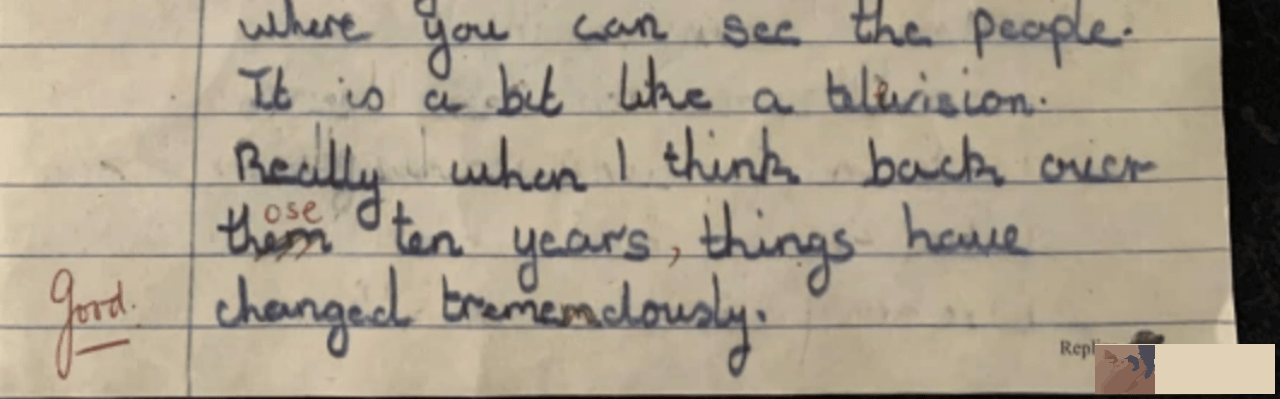 where you can see the people.
It is a bit like a television.
Really when I think back over
ose
them ten years, things have
Good.
changed tremendously.